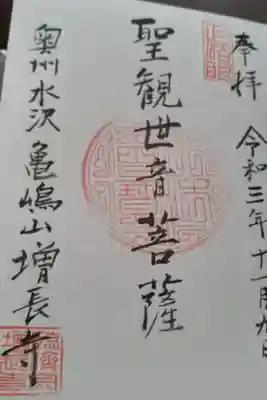 奉拝 令和三年十一月九日
聖観世音菩薩
奥州水沢 亀嶋山増長寺